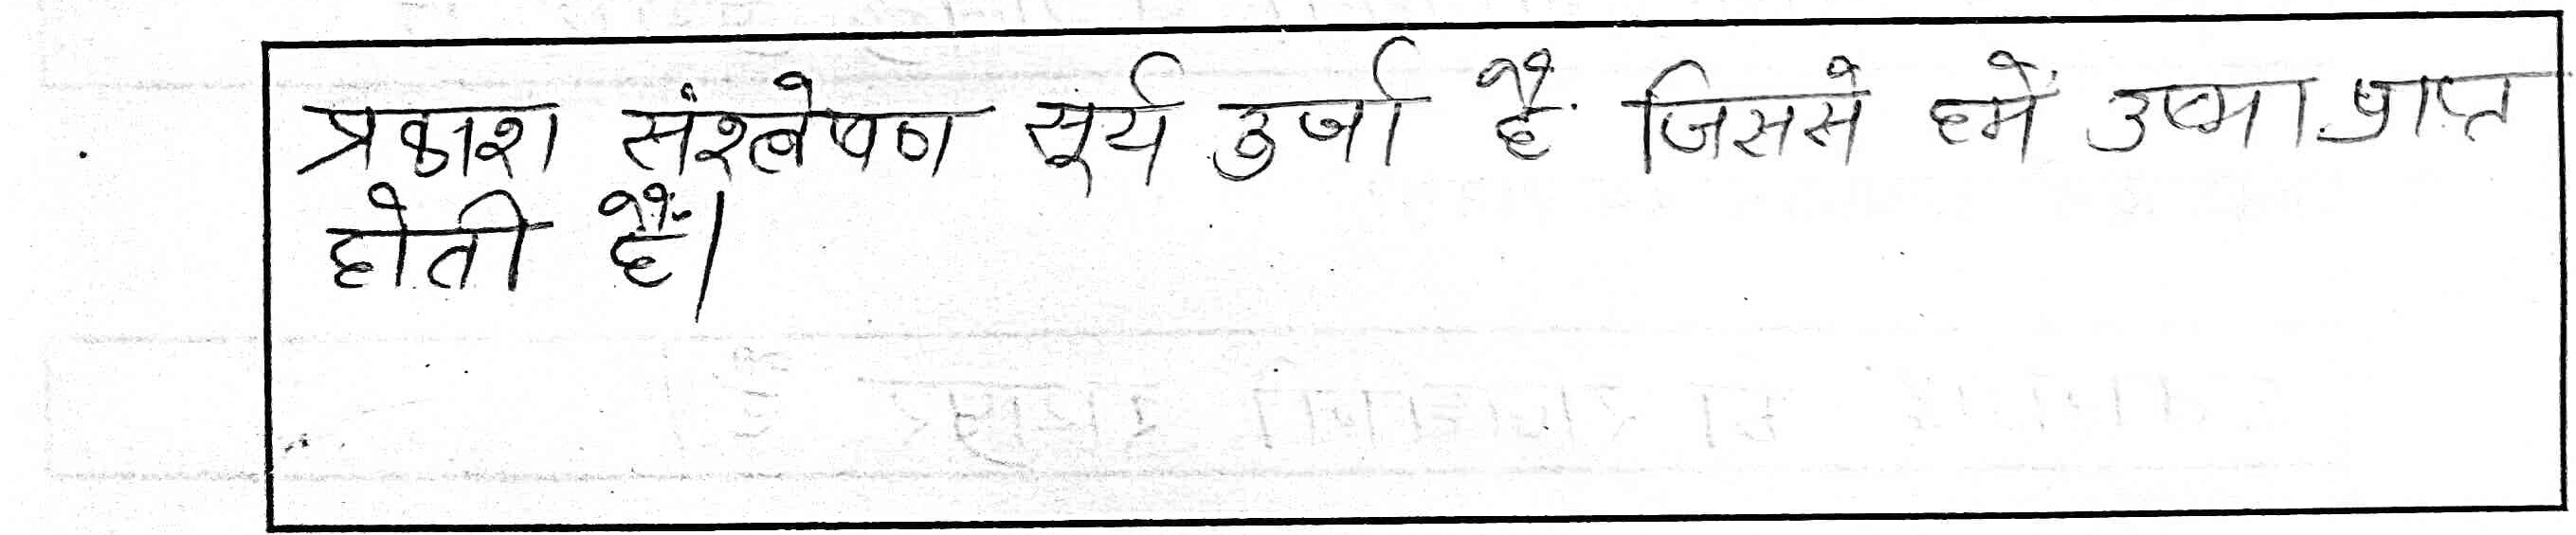 प्रकाश संश्लेषण सूर्य उुर्जा है जिससे हमें उष्मा प्राप्त
होती हैं।